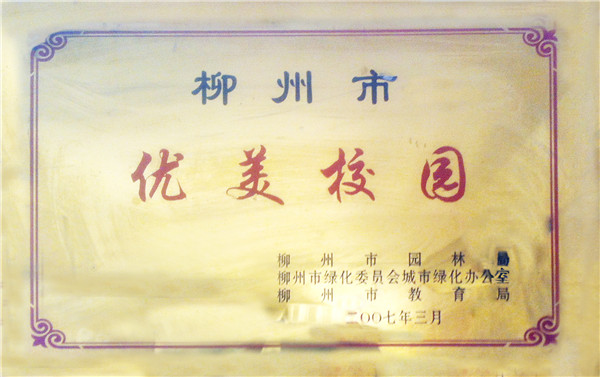 柳州市
优美校园
柳州市园林局
柳州市绿化委员会城市绿化办公室
柳州市教育局
二〇〇七年三月